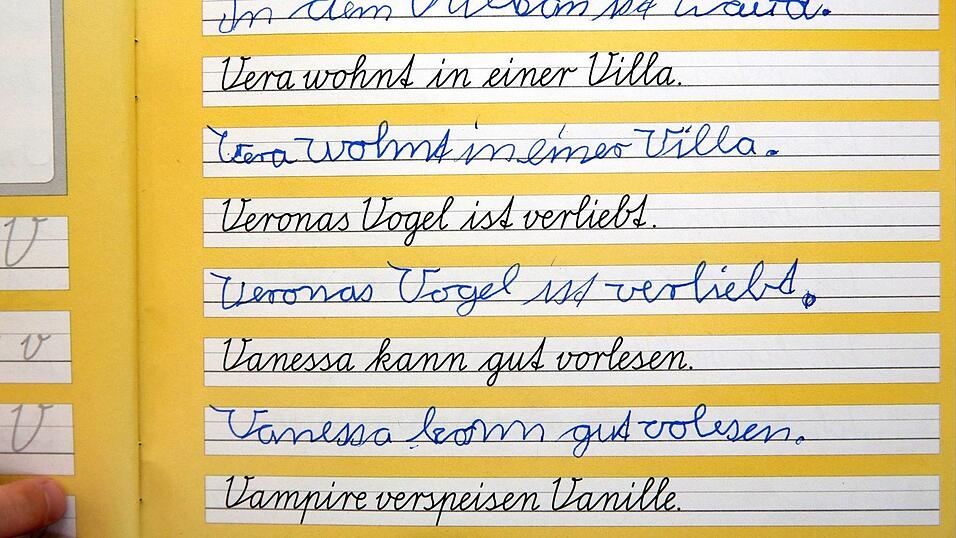 In dem ist
Vera wohnt in einer Villa.
Vera wohnt in einer Villa.
Veronas Vogel ist verliebt.
Veronas Vogel ist verliebt.
V
Vanessa kann gut vorlesen.
v
Vanessa kann gut volesen.
V
Vampire verspeisen Vanille.